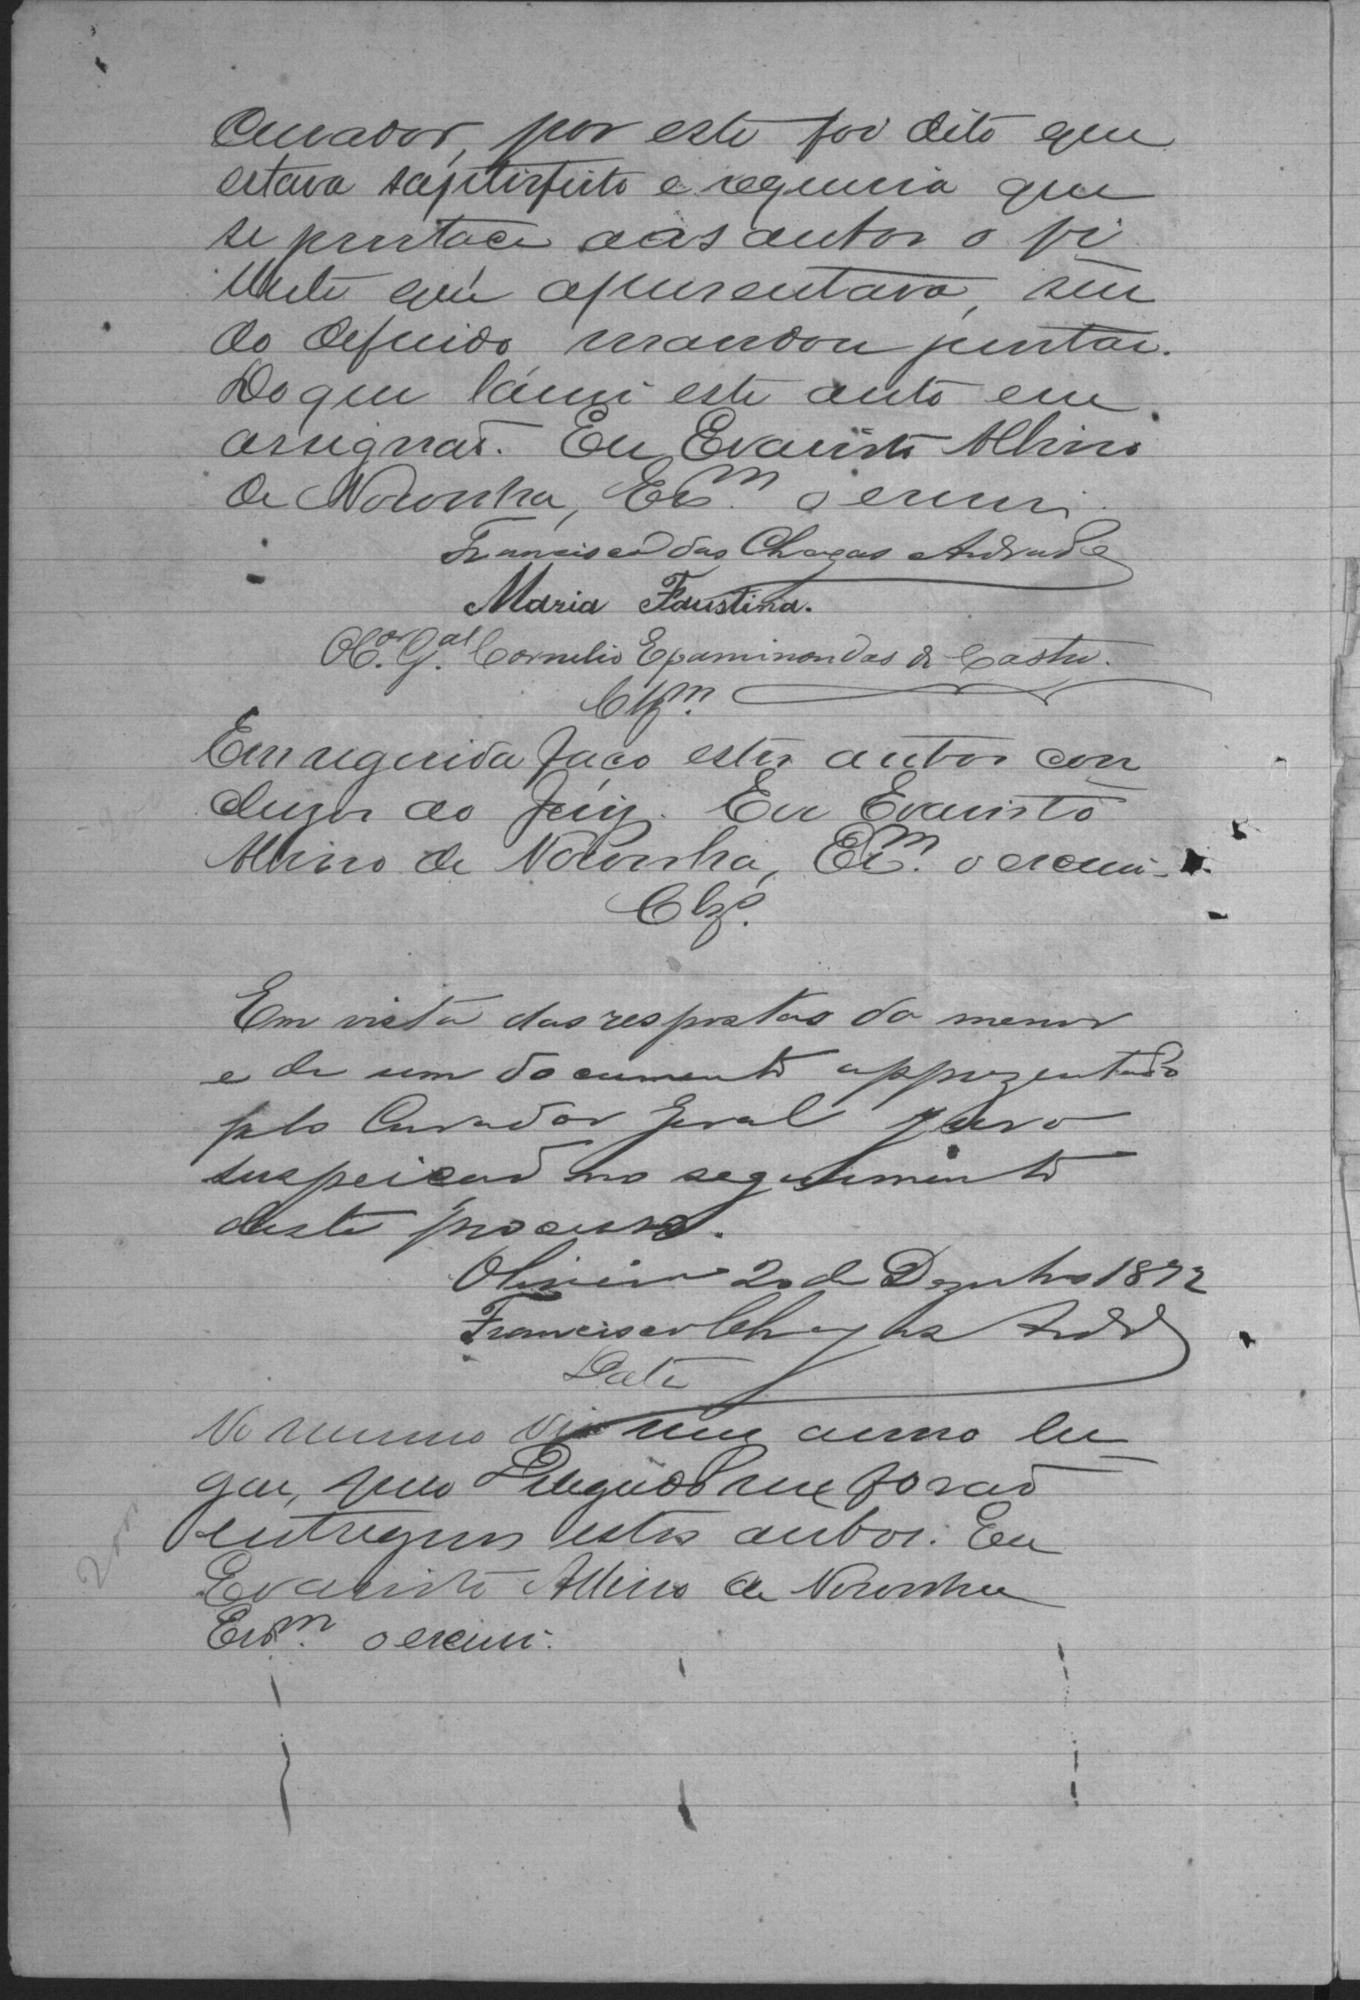 Curador, por este foi dito que
estava saptisfeito e requeria que
se juntace aos autos o
que apresentava, sen
do deferido mandou juntar.
Do que lavrei este auto em
assignão. Eu Evaristo Albino
de Noronha, Escm. o escrevi.
Francisco das Chagas Andrade
Maria Faustina.
O C.or G.al Cornelio Epaminondas de Castro.
Clzm.
Em seguida faço estes autos con
cluzos ao Juiz. Eu Evaristo
Albino de Noronha, Escm. o escrevi.
Clzo.
Em vista das respostas da menor
e de um documento apprezentado
pelo Curador Geral juro
suspeicaõ no seguimento
deste processo.
Oliveira 20 de Dezembro 1892
Francisco Chagas Andrade
Data
No mesmo dia mez anno lu
gar, pelo me foraõ
entregues estes autos. Eu
Evaristo Albino de Noronha
Escm. o escrevi.